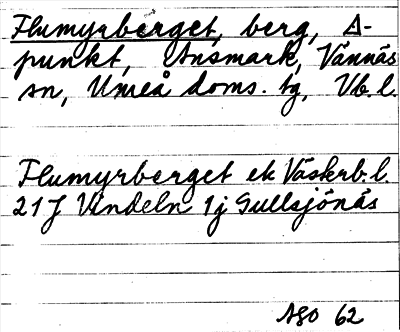 Flumyrberget, berg, Δ-
punkt, Ansmark, Vännäs
sn, Umeå doms. tg, Vb. l.
Flumyrberget ek Västerb. l.
21J Vindeln 1j Gullsjönäs
ASO 62